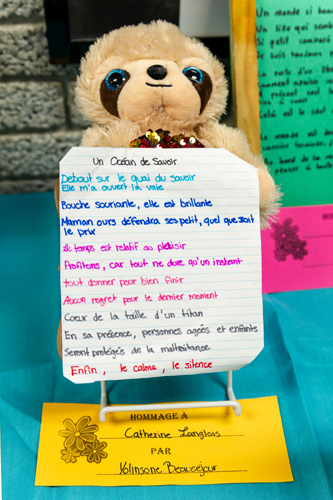 Un Océan de Savoir
Debout sur le quai du savoir
Elle m'a ouvert la voie
Bouche souriante, elle est brillante
Maman ours défendra ses petit, quel que soit
le prix
Le temps est relatif au plaisir
Profitons, car tout ne dure qu'un instant
tout donner pour bien finir
Aucun regret pour le dernier moment
Coeur de la taille d'un titan
En sa présence, personnes agées et enfants
Seront protégés de la maltraitance
Enfin, le calme, le silence
HOMMAGE À
Catherine Langlois
PAR
Yolinsone Beausejour
Un monde si
Un lire qui semb
Si petit comparé
Je suis tendons
HOMMAGE